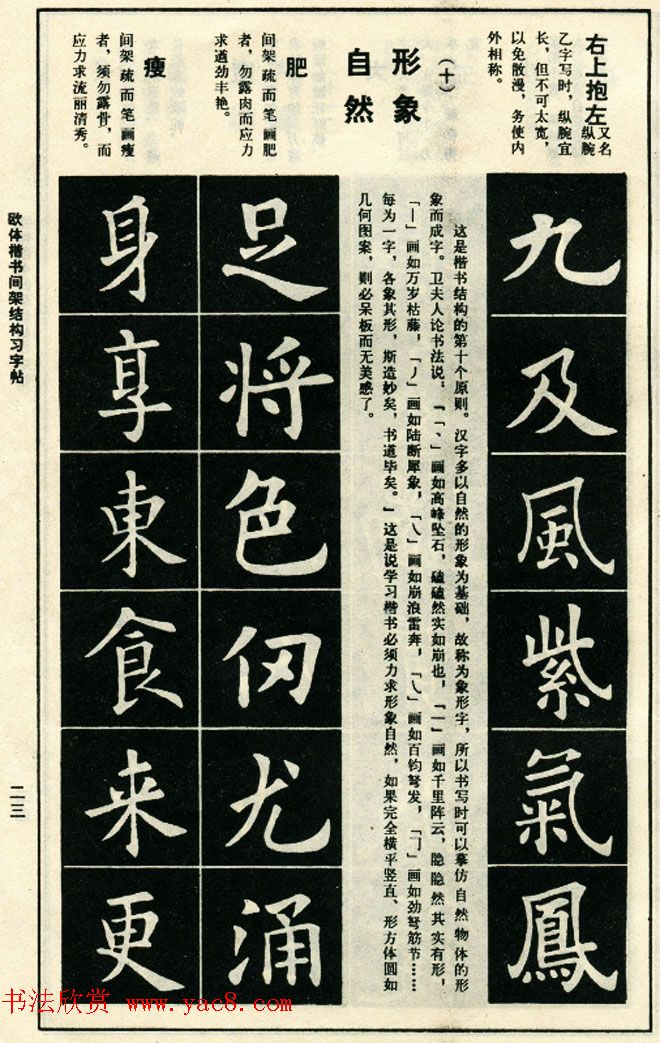 右上抱左 又名纵腕
乙字写时，纵腕宜
长，但不可太宽，
以免散漫，务使内
外相称。
九
及
風
紫
氣
鳳
（十）
形象
自然
这是楷书结构的第十个原则。汉字多以自然的形象为基础，故称为象形字，所以书写时可以摹仿自然物体的形
象而成字。卫夫人论书法说，『「丶」画如高峰坠石，磕磕然实如崩也，「一」画如千里阵云，隐隐然其实有形，
「丨」画如万岁枯藤，「丿」画如陆断犀象，「乀」画如崩浪雷奔，「㇂」画如百钧弩发，「𠃌」画如劲弩筋节……
每为一字，各象其形，斯造妙矣，书道毕矣。』这是说学习楷书必须力求形象自然，如果完全横平竖直、形方体圆如
几何图案，则必呆板而无美感了。
肥
间架疏而笔画肥
者，勿露肉而应力
求遒劲丰艳。
足
将
色
仞
尤
涌
瘦
间架疏而笔画瘦
者，须勿露骨，而
应力求流丽清秀。
身
享
東
食
来
更
欧体楷书间架结构习字帖
二三
书法欣赏 www.yac8.com